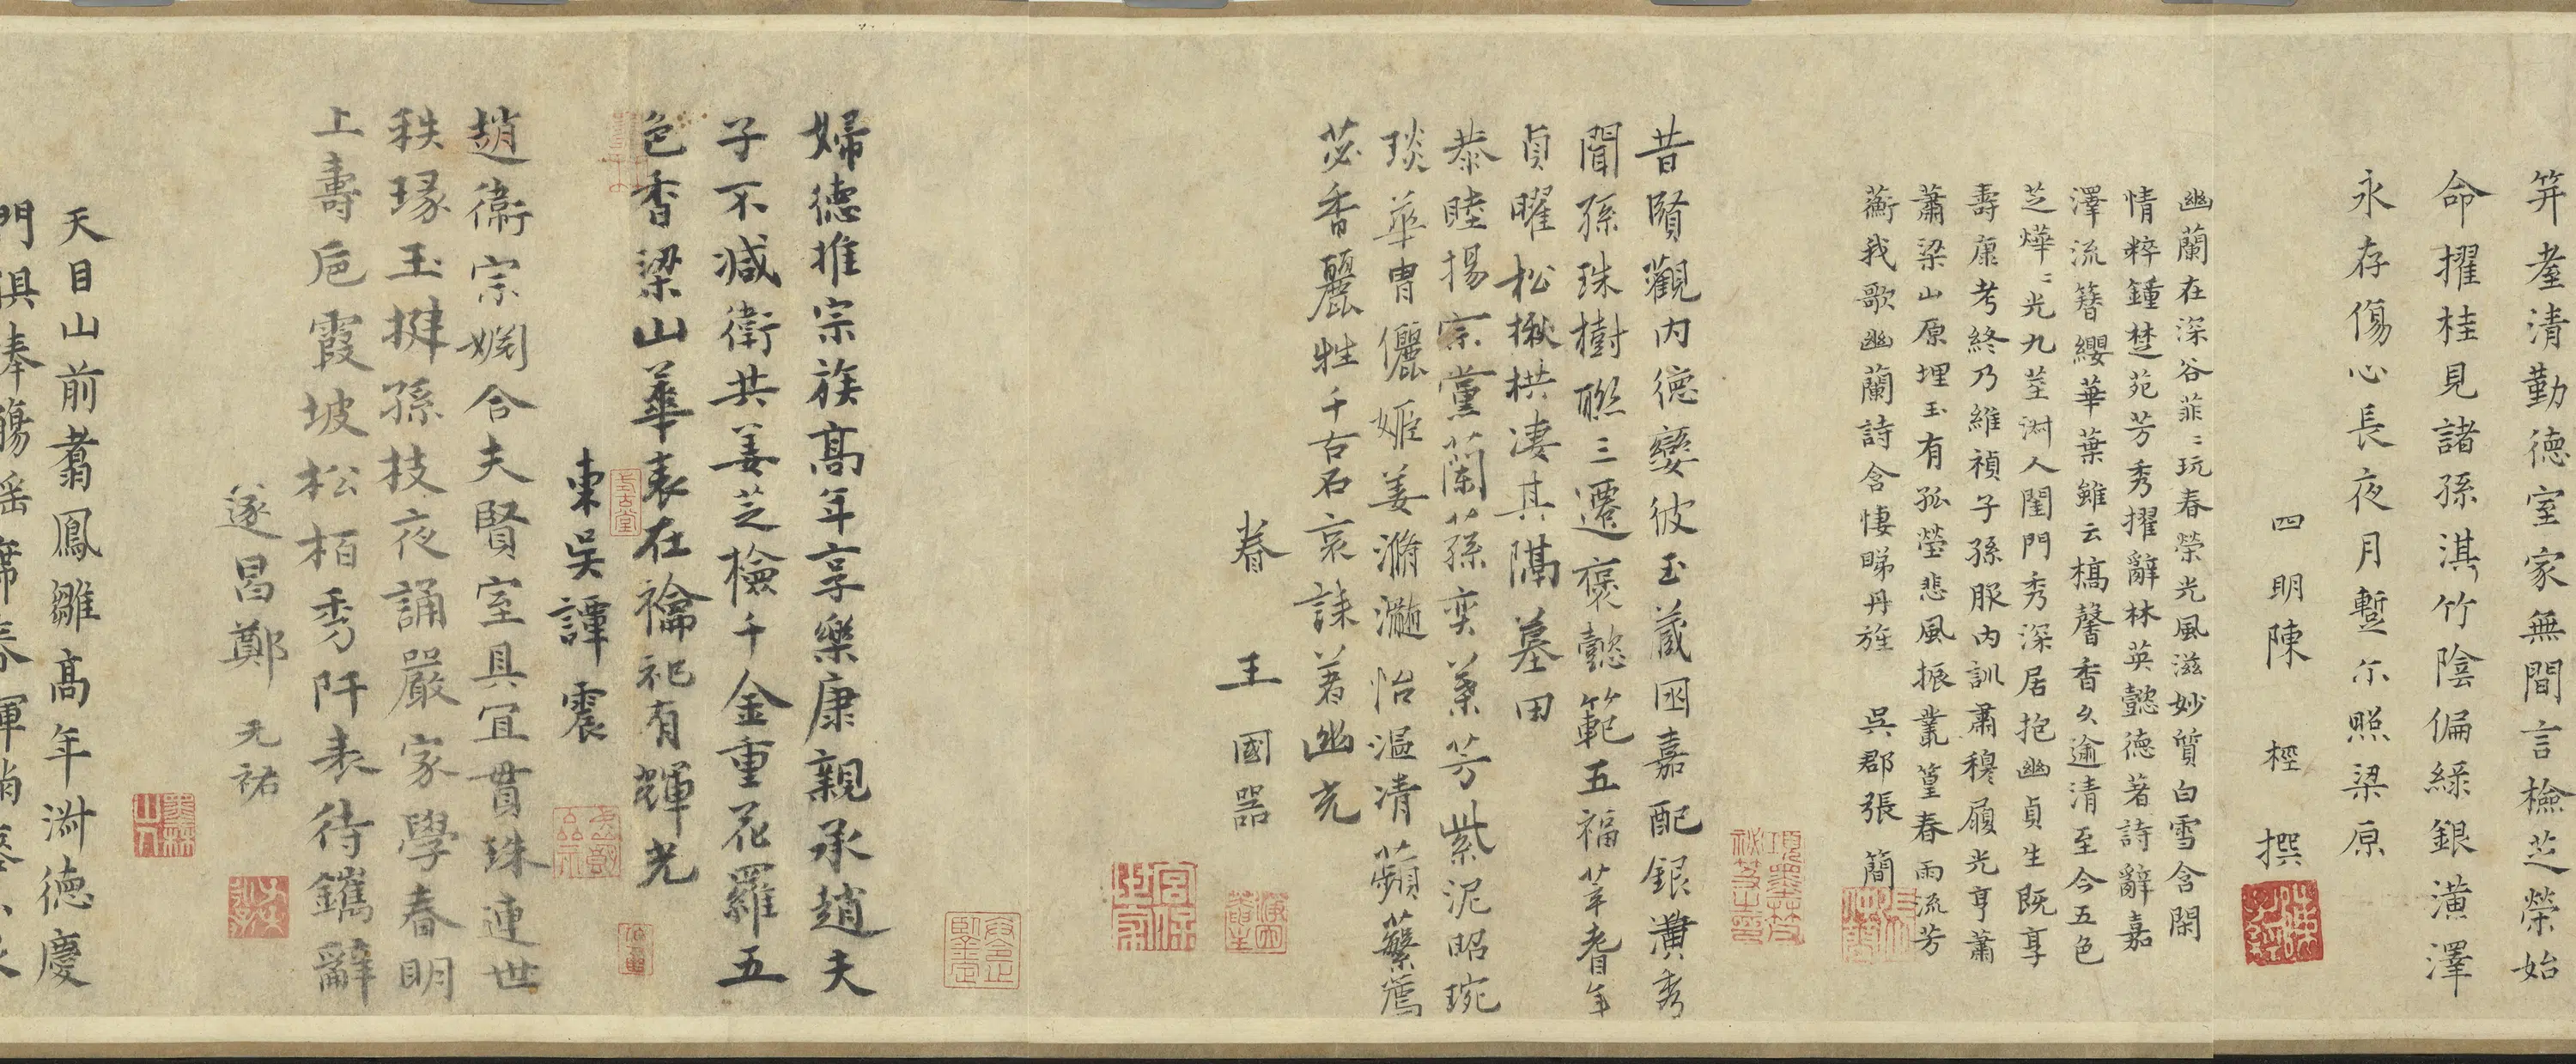 笄孝清勤德室家無間言檢芝榮始
命擢桂見諸孫淇竹陰偏綠銀潢澤
永存傷心長夜月蹔尒照梁原
四明陳樫撰
幽蘭在深谷菲〻玩春榮光風滋妙質白雪含閑
情粹鍾楚苑芳秀擢辭林英懿德著詩辭嘉
澤流簪纓華葉雖云槁馨香久逾清至今五色
芝燁〻光九莖淑人閨門秀深居抱幽貞生既享
壽康考終乃維禎子孫服內訓肅穆履光亨蕭
蕭梁山原埋玉有孤塋悲風振叢篁春雨流芳
蘅我歌幽蘭詩含悽睇丹旌 吳郡張簡
昔賢觀內德孌彼玉葳囦嘉配銀潢秀
聞孫珠樹聯三遷褒懿範五福萃耆年
貞曜松楸栱淒其隔墓田
恭睦揚宗黨蘭蓀奕葉芳紫泥昭琬
琰華胄儷姬姜滫瀡怡溫凊蘋蘩薦
苾香麗牲千古石哀誄著幽光
眷王國器
婦德推宗族高年享樂康親承趙夫
子不減衛共姜芝檢千金重花羅五
色香梁山華表在禴祀有輝光
東吳譚震
趙衛宗姻合夫賢室具宜貫珠連世
秩琢玉挺孫枝夜誦嚴家學春明
上壽卮霞坡松栢秀阡表待鐫辭
遂昌鄭元祐
天目山前翥鳳雛高年淑德慶
門俱奉觴瑤席春暉